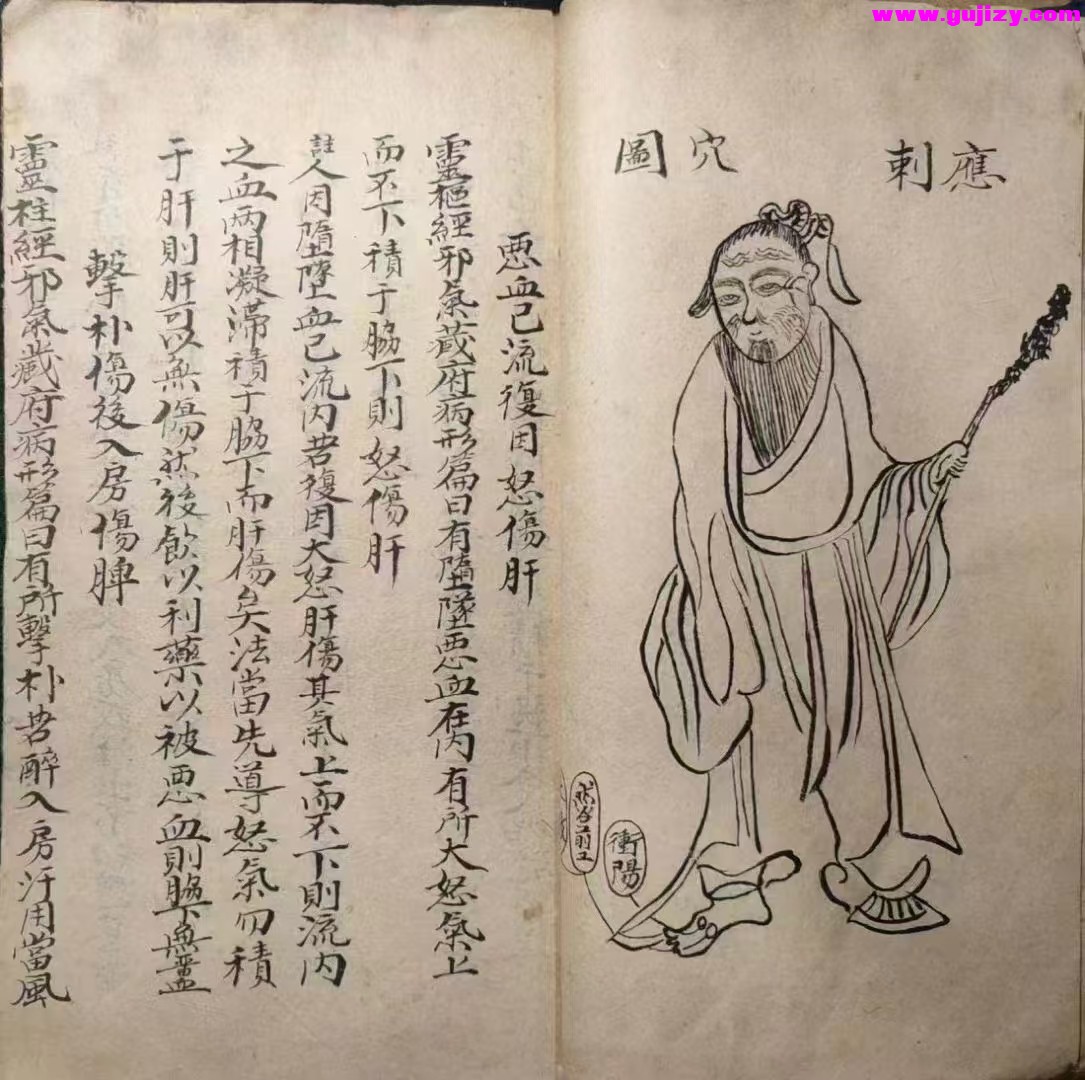 www.gujizy.com
應刺穴圖
衝陽
然谷前
惡血已流復因怒傷肝
靈樞經邪氣藏府病形篇曰有墮墜惡血在內有所大怒氣上
而不下積于脇下則怒傷肝
註人因墮墜血已流內若復因大怒肝傷其氣上而不下則流內
之血兩相凝滯積于脇下而肝傷矣法當先導怒氣勿積
于肝則肝可以無傷然後飲以利藥以被惡血則脇下無
擊朴傷後入房傷脾
靈柱經邪氣藏府病形篇曰有所擊朴若醉入房汗用當風